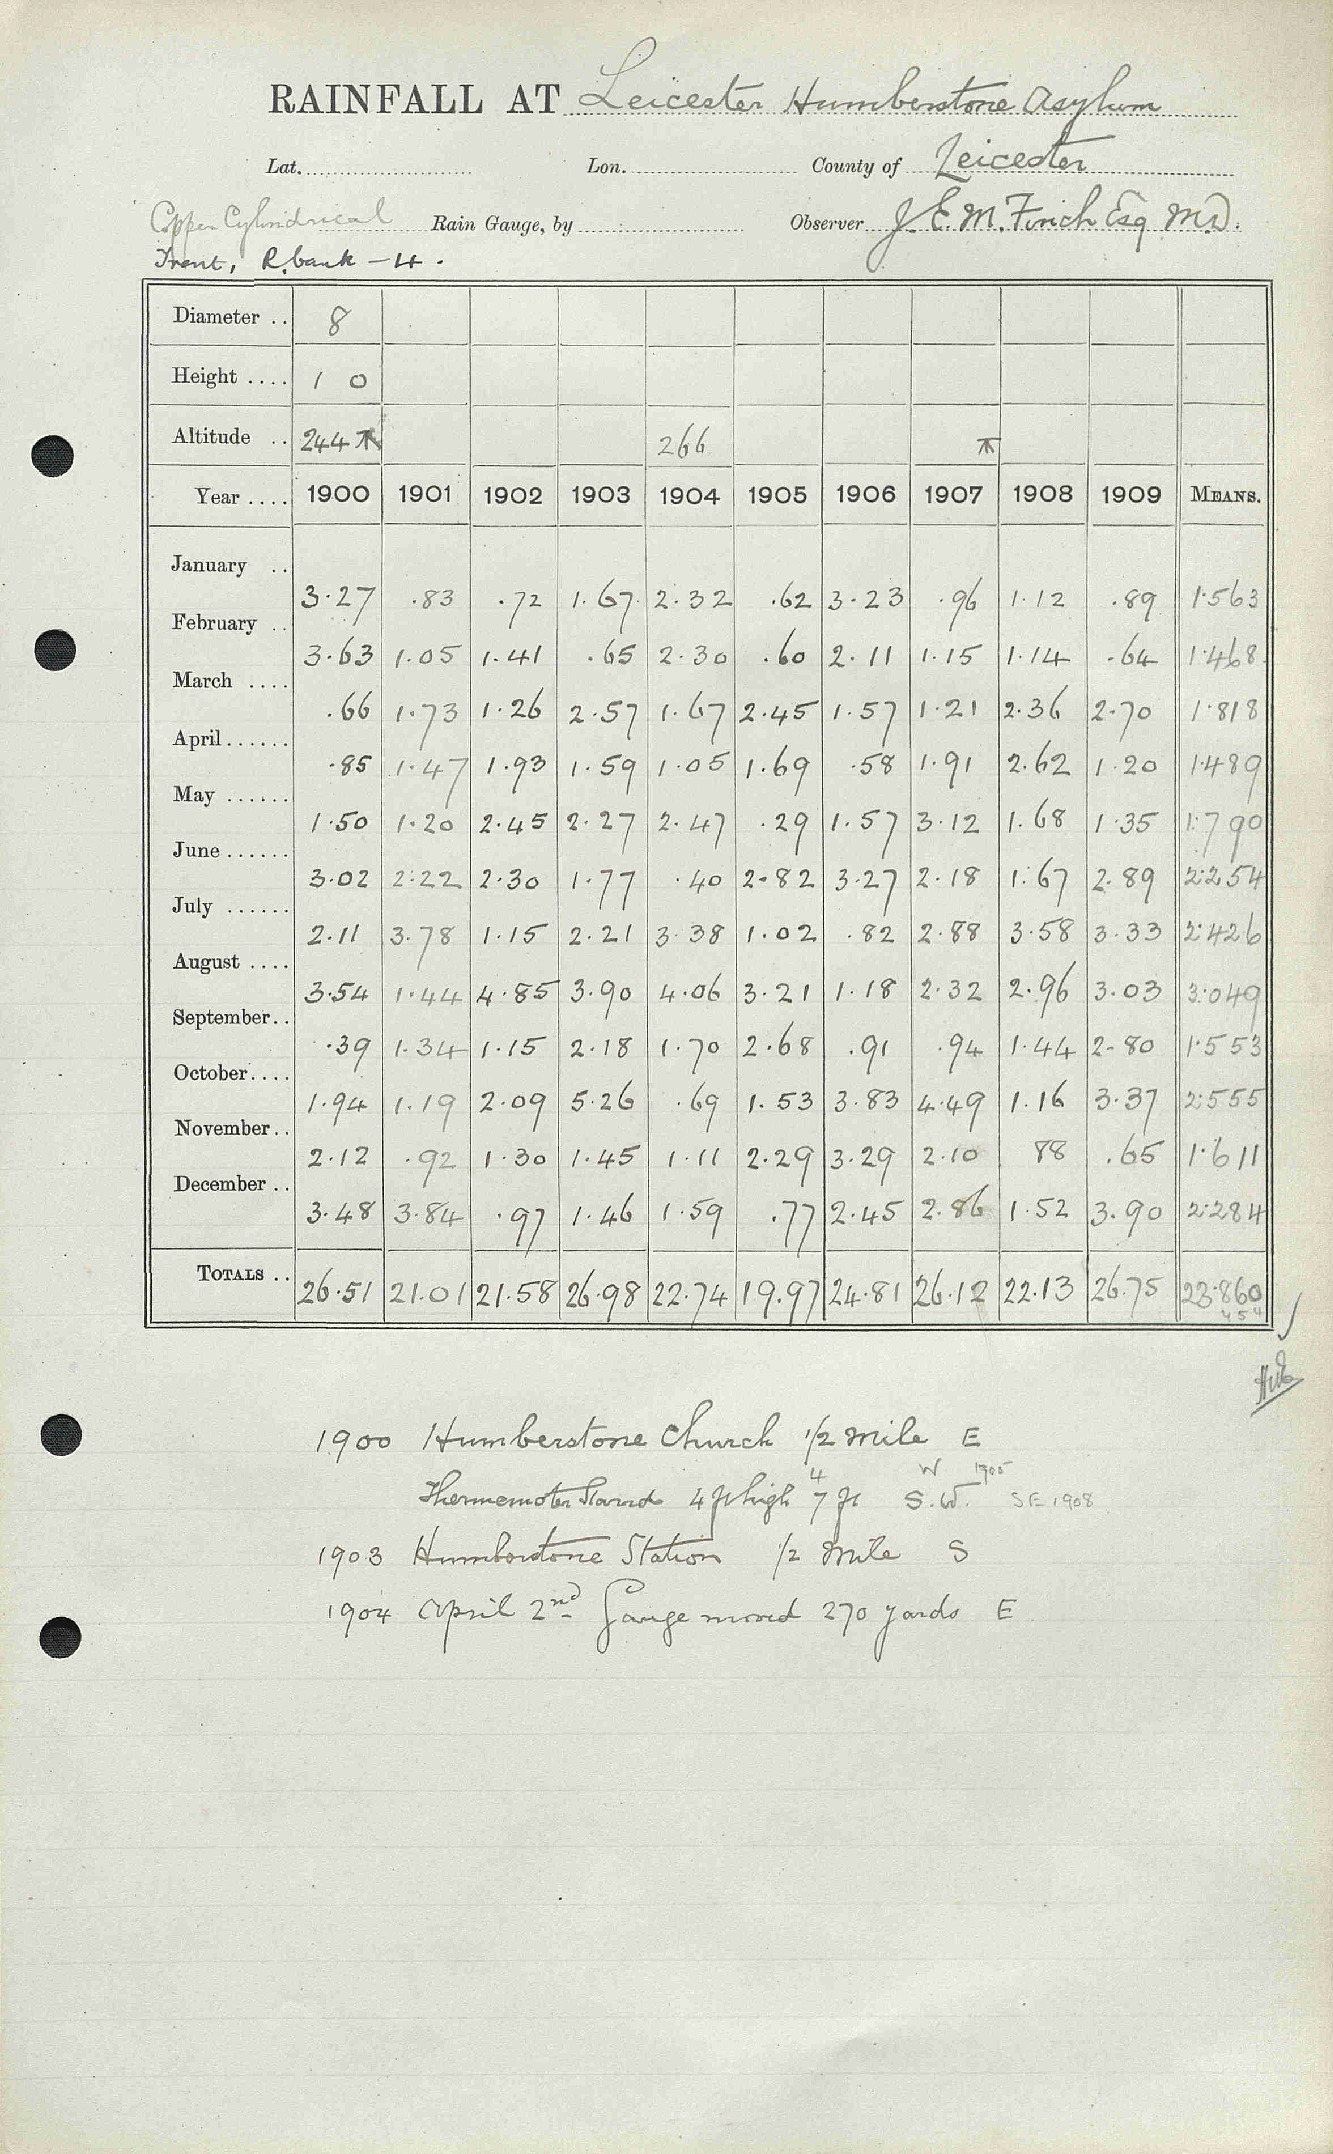 RAINFALL AT Leicester Humberstone Asylum
Lat. Lon. County of Leicester
Copper Cylindrical Rain Gauge, by Observer J. E. M. Finch Esq M.D.
Trent, R. bank - 4.
Diameter .. 8
Height .... 1 0
Altitude .. 244 266
Year .... 1900 1901 1902 1903 1904 1905 1906 1907 1908 1909 MEANS.
January .. 3.27 .83 .72 1.67 2.32 .62 3.23 .96 1.12 .89 1.563
February .. 3.63 1.05 1.41 .65 2.30 .60 2.11 1.15 1.14 .64 1.468
March .... .66 1.73 1.26 2.57 1.67 2.45 1.57 1.21 2.36 2.70 1.818
April ...... .85 1.47 1.93 1.59 1.05 1.69 .58 1.91 2.62 1.20 1.489
May ...... 1.50 1.20 2.45 2.27 2.47 .29 1.57 3.12 1.68 1.35 1.790
June ...... 3.02 2.22 2.30 1.77 .40 2.82 3.27 2.18 1.67 2.89 2.254
July ...... 2.11 3.78 1.15 2.21 3.38 1.02 .82 2.88 3.58 3.33 2.426
August .... 3.54 1.44 4.85 3.90 4.06 3.21 1.18 2.32 2.96 3.03 3.049
September .. .39 1.34 1.15 2.18 1.70 2.68 .91 .94 1.44 2.80 1.553
October .... 1.94 1.19 2.09 5.26 .69 1.53 3.83 4.49 1.16 3.37 2.555
November .. 2.12 .92 1.30 1.45 1.11 2.29 3.29 2.10 88 .65 1.611
December .. 3.48 3.84 .97 1.46 1.59 .77 2.45 2.86 1.52 3.90 2.284
TOTALS .. 26.51 21.01 21.58 26.98 22.74 19.97 24.81 26.12 22.13 26.75 23.860
" 5 "
1900 Humberstone Church 1/2 mile E
4 W 1905
Thermometer Stand 4 ft high 7 ft S.W. SE 1908
1903 Humberstone Station 1/2 Mile S
1904 April 2nd Gauge moved 270 yards E